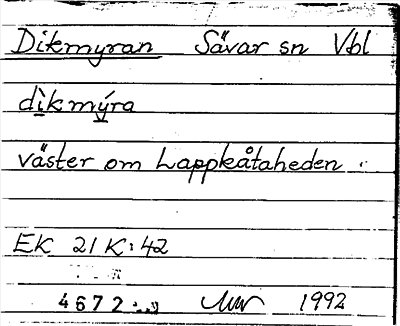 Dikmyran Sävar sn Vbl
dìkmýra
väster om Lappkåtaheden
EK 21 K: 42
4672
1992